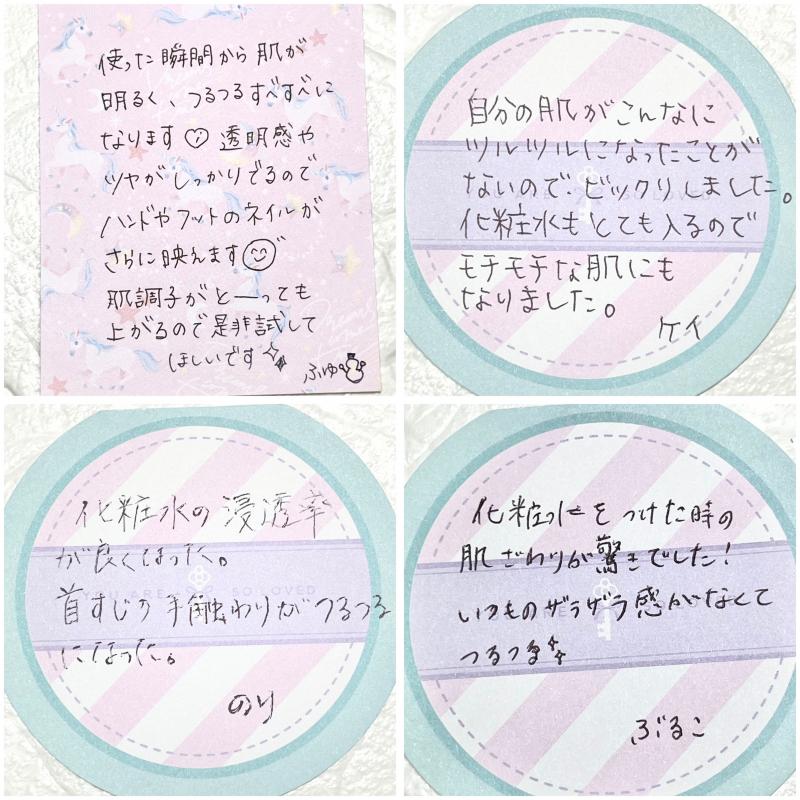 使った瞬間から肌が
明るく、つるつるすべすべに
なります 透明感や
ツヤがしっかりでるので
ハンドやフットのネイルが
さらに映えます
肌調子がと――っても
上がるので是非試して
ほしいです
ふゆ
自分の肌がこんなに
ツルツルになったことが
ないので、ビックリしました。
化粧水もとても入るので
モチモチな肌にも
なりました。
ケイ
化粧水の浸透率
が良くなった。
YOU ARE SO LOVED
首すじの手触わりがつるつる
になった。
のり
化粧水をつけた時の
肌ざわりが驚きでした!
いつものザラザラ感がなくて
つるつる
ぶるこ